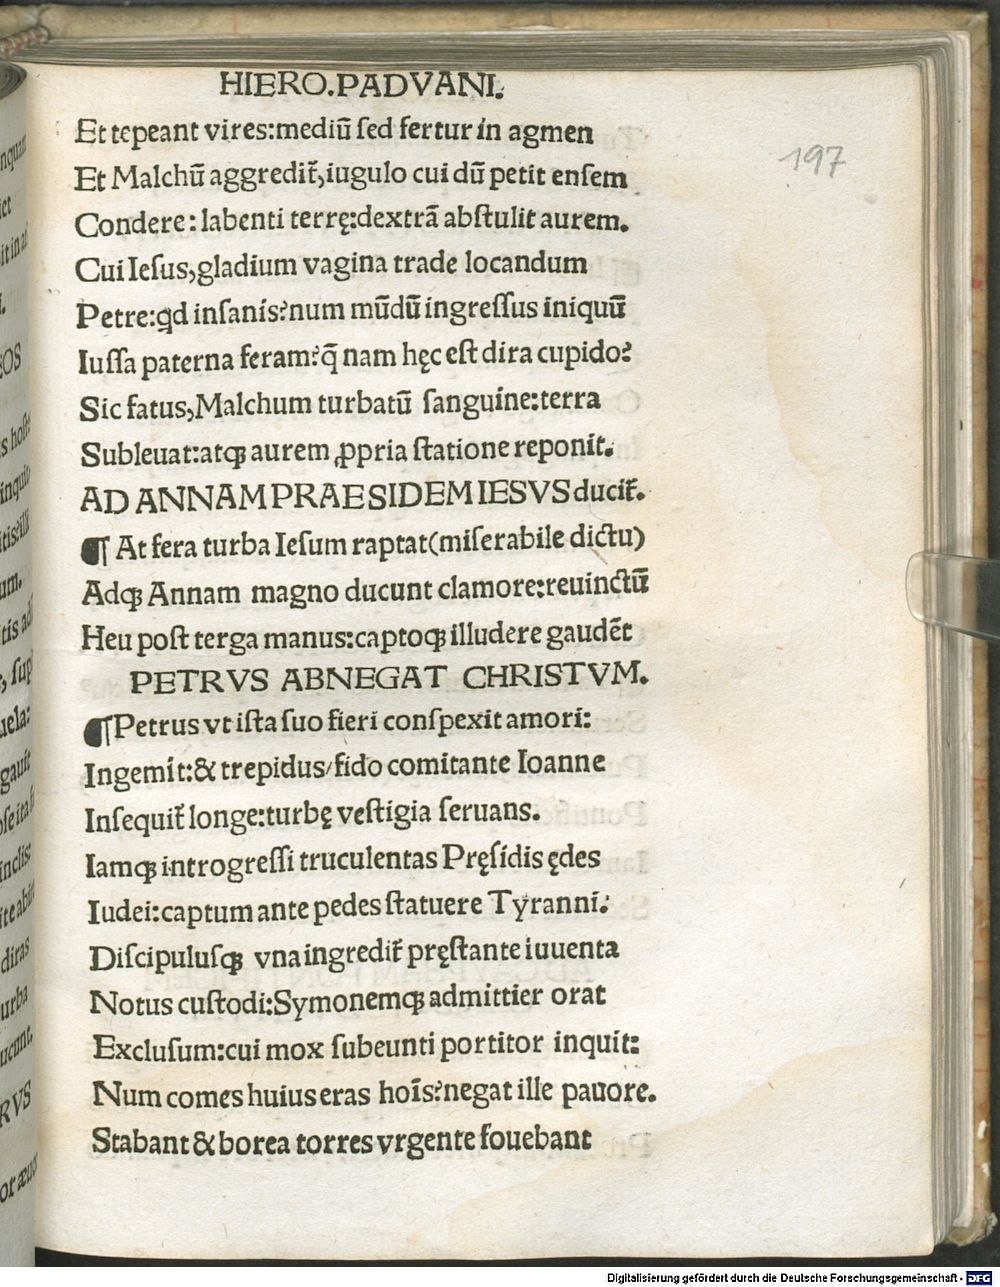 HIERO.PADVANI.
Et tepeant vires:mediū ſed fertur in agmen
197
Et Malchū aggredit̃,iugulo cui dū petit enſem
Condere: labenti terrę:dextrā abſtulit aurem.
Cui Ieſus,gladium vagina trade locandum
Petre:qd inſanis?num mūdū ingreſſus iniquū
Iuſſa paterna feram?q̄ nam hęc eſt dira cupido?
Sic fatus,Malchum turbatū ſanguine:terra
Subleuat:atqꝫ aurem ꝓpria ſtatione reponit.
AD ANNAM PRAESIDEM IESVS ducit̃.
¶ At fera turba Ieſum raptat(miſerabile dictu)
Adqꝫ Annam magno ducunt clamore:reuinctū
Heu poſt terga manus:captoqꝫ illudere gaudēt
PETRVS ABNEGAT CHRISTVM.
¶Petrus vt iſta ſuo fieri conſpexit amori:
Ingemit:& trepidus/fido comitante Ioanne
Inſequit̃ longe:turbę veſtigia ſeruans.
Iamqꝫ introgreſſi truculentas Pręſidis ędes
Iudei:captum ante pedes ſtatuere Tyranni.
Diſcipuluſqꝫ vna ingredit̃ pręſtante iuuenta
Notus cuſtodi:Symonemqꝫ admittier orat
Excluſum:cui mox ſubeunti portitor inquit:
Num comes huius eras hoīs?negat ille pauore.
Stabant & borea torres vrgente fouebant
Digitalisierung gefördert durch die Deutsche Forschungsgemeinschaft - DFG